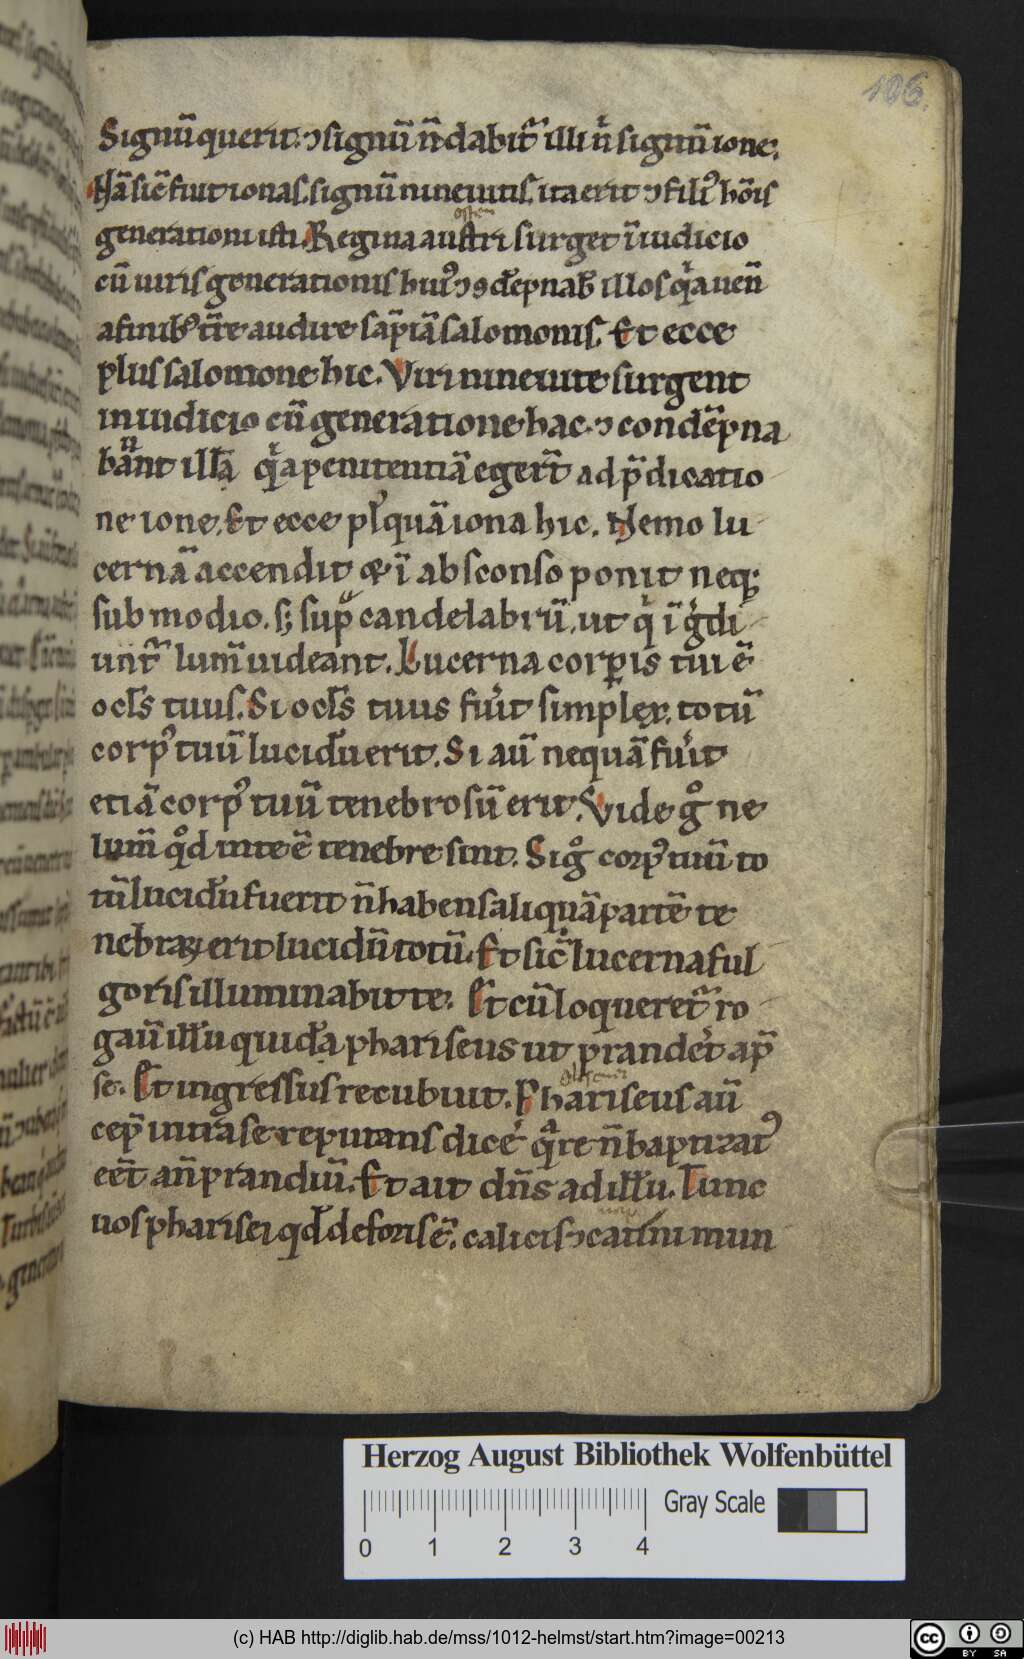 106.
Signū querit. ⁊ signū n̄ dabit᷑ illi n̓ signū ione.
Nā sic̄ fuit ionas signū nineuitis. ita erit ⁊ filiꝰ hōis
generationi isti. Regina austri surget ī iudicio
cū uiris generationis huiꝰ ⁊ ꝯdēpnab̄ illos q̓a uen̄
a finibꝰ tr̄e audire sap̄iā salomonis. Et ecce
plus salomone hic. Viri nineuite surgent
in iudicio cū generatione hac. ⁊ condēpna
bn̄t illā q̓a penitentiā egert̄ ad p̄dicatio
ne ione. Et ecce plꝰ quā iona hic. Nemo lu
cernā accendit & ī absconso ponit neq;
sub modio. s; sup̄ candelabrū. ut q̓ īg̓di
unt᷑ lum̄ uideant. Lucerna corꝑis tui ē
ocl̄s tuus. Si ocl̄s tuus fu̓it simplex. totū
corpꝰ tuū lucidū erit. Si aū nequā fu̓it
etiā corpꝰ tuū tenebrosū erit. Vide gͦ ne
lum̄ qͦd in te ē tenebre sint. Si gͦ corpꝰ tuū to
tū lucidū fuerit n̄ habens aliquā partē te
nebraꝝ erit lucidū totū. Et sic̄ lucerna ful
goris illuminabit te. Et cū loqueret᷑ ro
gau̅ illū quidā phariseus ut prandet̓ ap̄
se. Et ingressus recubuit. Phariseus aū
cep̄ intra se reputans dice̓ qᷓre n̄ baptizatꝰ
eēt an̄ prandiū. Et ait dn̄s ad illū. Nunc
uos pharisei qd̄ deforis ē. calicis ⁊ catini mun
Herzog August Bibliothek Wolfenbüttel
0 1 2 3 4
Gray Scale
(c) HAB http://diglib.hab.de/mss/1012-helmst/start.htm?image=00213
cc BY SA